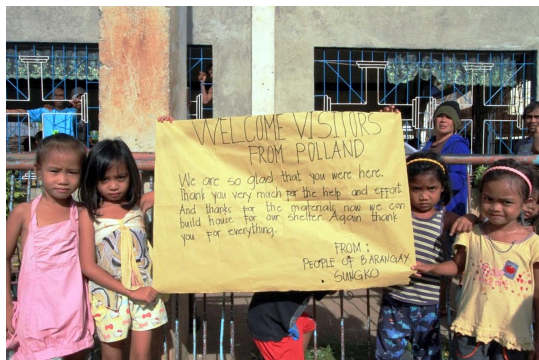 WELCOME VISITORS
FROM POLLAND
We are so glad that you were here.
Thank you very much for the help and effort
And thanks for the materials now we can
build house for our shelter. Again thank
you for everything.
FROM:
PEOPLE OF BARANGAY
SUNGKO